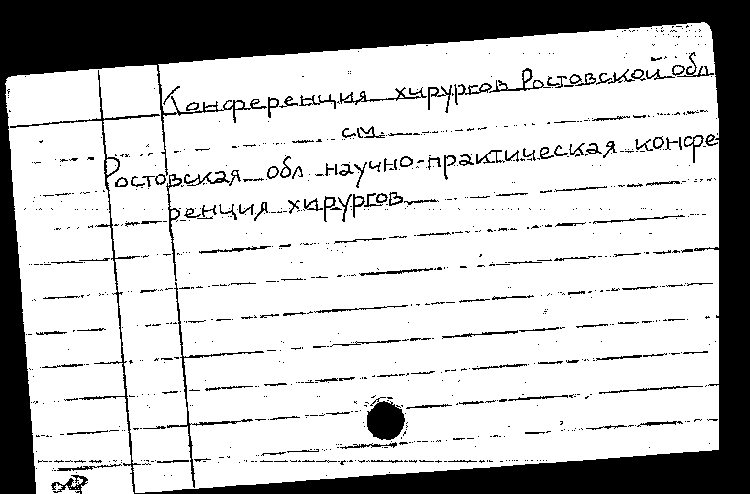 Конференция хирургов Ростовской обл
см.
Ростовская обл научно-практическая конфе-
ренция хирургов.